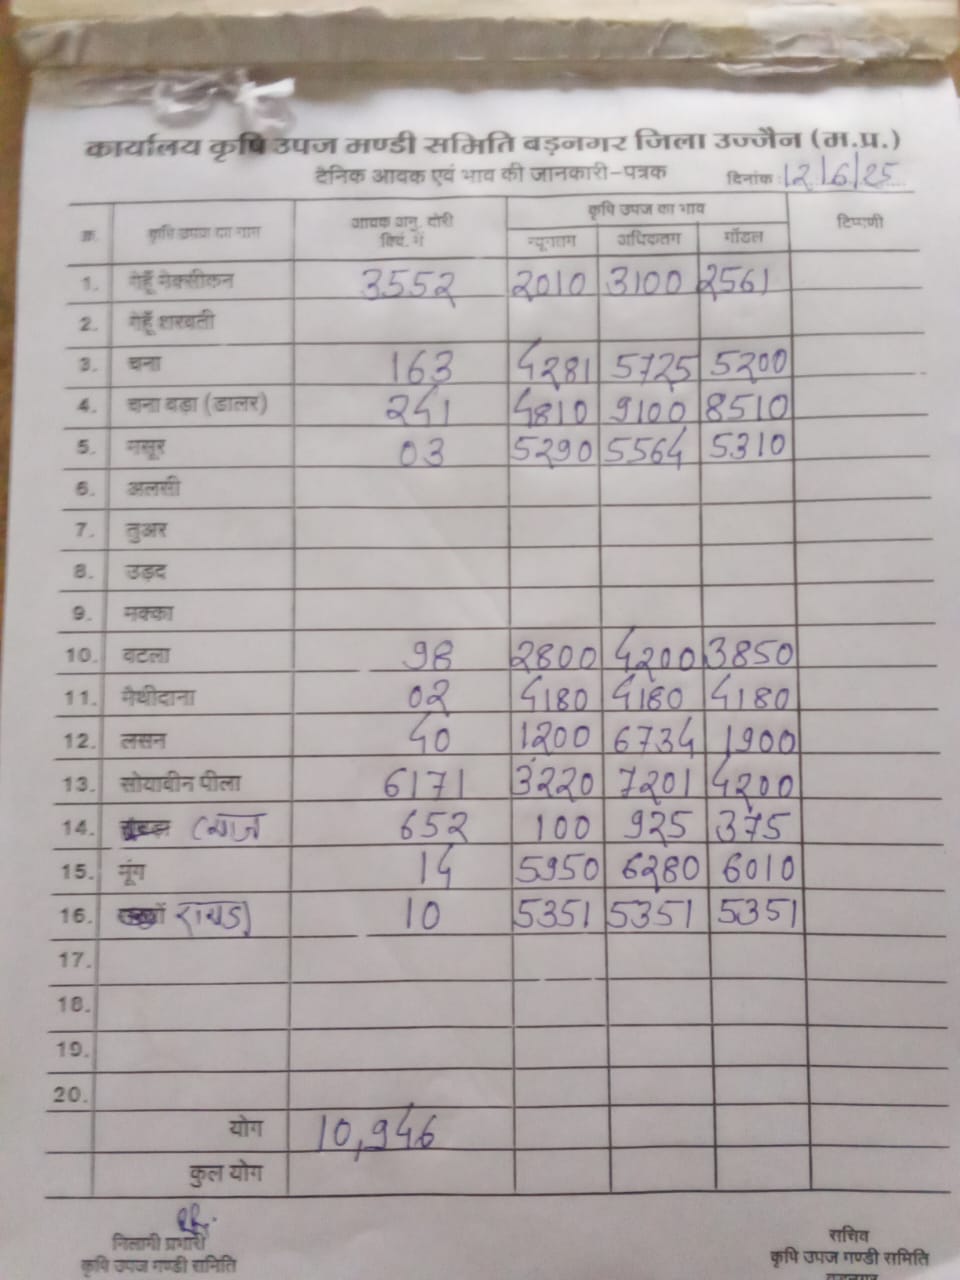 कार्यालय कृषि उपज मण्डी समिति बड़नगर जिला उज्जैन (म.प्र.)
दैनिक आवक एवं भाव की जानकारी-पत्रक दिनांक : 12/6/25
क्र. कृषि उपज का नाम आवक अनु. बोरी क्विं. में कृषि उपज का भाव टिप्पणी
न्यूनतम अधिकतम मॉडल
1. गेहूँ मेक्सीकन 3552 2010 3100 2561
2. गेहूँ शरबती
3. चना 163 4281 5725 5200
4. चना बड़ा (डालर) 241 4810 9100 8510
5. मसूर 03 5290 5564 5310
6. अलसी
7. तुअर
8. उड़द
9. मक्का
10. बटला 98 2800 4200 3850
11. मैथीदाना 02 4180 4180 4180
12. लसन 40 1200 6734 1900
13. सोयाबीन पीला 6171 3220 7201 4200
14. प्याज 652 100 925 375
15. मूंग 14 5950 6280 6010
16. रायडा 10 5351 5351 5351
17.
18.
19.
20.
योग 10,946
कुल योग
निलामी प्रभारी सचिव
कृषि उपज मण्डी समिति कृषि उपज मण्डी समिति
बड़नगर